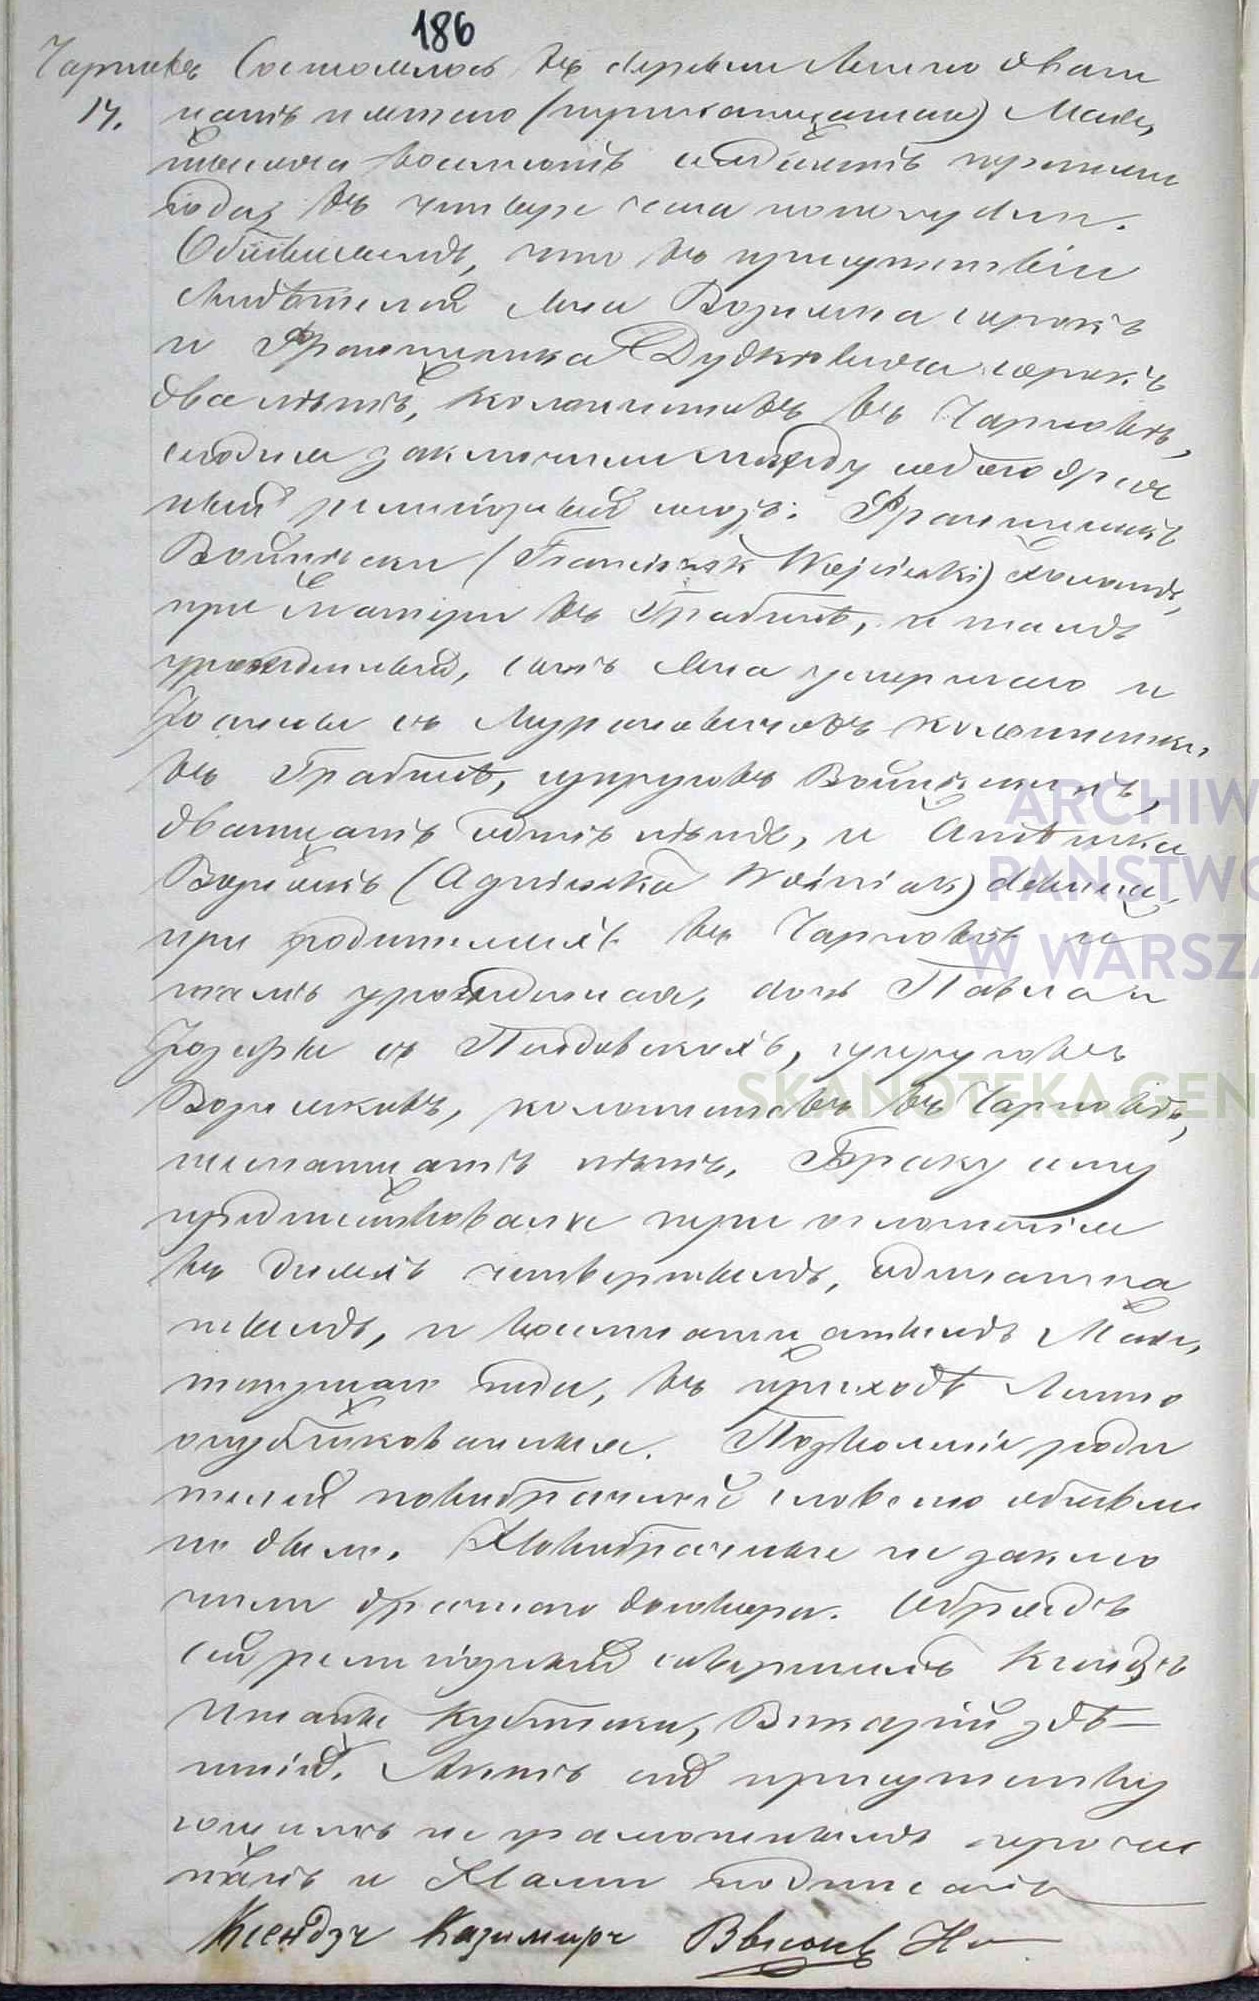 186
Чарновъ Состоялось въ деревни Лишно двати
17. цать пятаго (тринатцатаго) Мая,
тысяча восемсотъ семдесятъ перваго
года, въ четыре часа пополудни.
Объявляемъ, что въ присутствіи
свидѣтелей Яна Возняка сорокъ
и Францишка Дудкевича сорокъ
два лѣтъ, колонистовъ въ Чарновѣ,
сегодня заключили между собою брач
ный религіозный союзъ: Францишкъ
Войцѣски (Franciszek Wojcieski) холостъ,
при матери въ Грабинѣ, и тамъ
урожденный, сынъ Яна умершаго и
Іоанны съ колонистки
въ Грабинѣ, супруговъ
двадцать одинъ лѣтъ, и Агнѣшка
Вознякъ (Agnieszka Woźniak) девица
при родителяхъ въ Чарновѣ и
тамъ урожденная, дочь Павла и
Іозефы съ супруговъ
Возняковъ, колонистовъ въ Чарновѣ,
лѣтъ. Браку сему
предшествовали три оглашенія
въ дняхъ четвертымъ, одинатца
тымъ, и восемнатцатымъ Мая,
текущаго года, въ приходѣ Лишно
опубликованныя. Позволеніе роди
телей новобрачной словесно объявле
но было. Новобрачные не заклю
чили брачнаго договора. Обрядъ
сей религіозный совершилъ Ксіондзъ
Игнатій Викарій здѣ-
шній. Актъ сей присутству
ющимъ неграмотнымъ прочи
танъ и Нами подписанъ
Ксендзъ Казимиръ
ARCHIW
PAŃSTWO
W WARSZA
SKANOTEKA.GEN